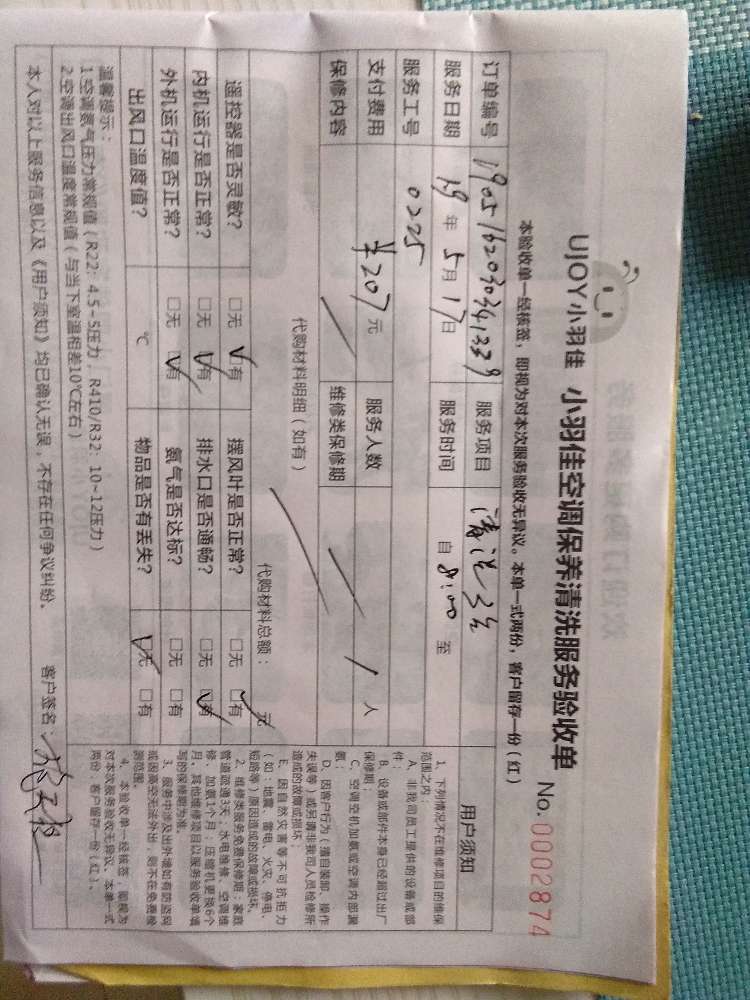 UJOY小羽佳 小羽佳空调保养清洗服务验收单
No.0002874
本验收单一经核签，即视为对本次服务验收无异议。本单一式两份，客户留存一份（红）
订单编号 服务项目
服务日期 19年5月17日 服务时间 自8:00 至
服务工号 0225
支付费用 ¥207元 服务人数 1人
保修内容 维修类保修期
代购材料明细（如有）
代购材料总额： 元
遥控器是否灵敏？ □无 □有 摆风叶是否正常？ □无 □有
内机运行是否正常？ □无 □有 排水口是否通畅？ □无 □有
外机运行是否正常？ □无 □有 氨气是否达标？ □无 □有
出风口温度值？ ℃ 物品是否有丢失？ □无 □有
温馨提示：
1.空调氨气压力常规值（R22：4.5~5压力，R410/R32：10~12压力）
2.空调出风口温度常规值（与当下室温相差10℃左右）
本人对以上服务信息以及《用户须知》均已确认无误，不存在任何争议纠纷。 客户签名：
用户须知
1、下列情况不在维修项目的维保
范围之内：
A、非我司员工提供的设备或部
件；
B、设备或部件本身已经超过出厂
保修期；
C、空调充机加氨或空调内部漏
氨；
D、因客户行为（擅自装卸、操作
失误等）或另请非我司人员检修所
造成的故障或损坏；
E、因自然灾害等不可抗拒力
（如：地震、雷电、火灾、停电、
短路等）原因造成的故障或损坏。
2、维修类服务免费保修期：家庭
管道疏通3天，水电维修、空调维
修、加氨1个月，压缩机更换6个
月，其他维修项目以服务验收单填
写的保修期为准。
3、服务中涉及出外墙如有防盗网
或因高空无法外出，则不在免费检
测范围。
4、本验收单一经核签，即视为
对本次服务验收无异议，本单一式
两份，客户留存一份（红）。